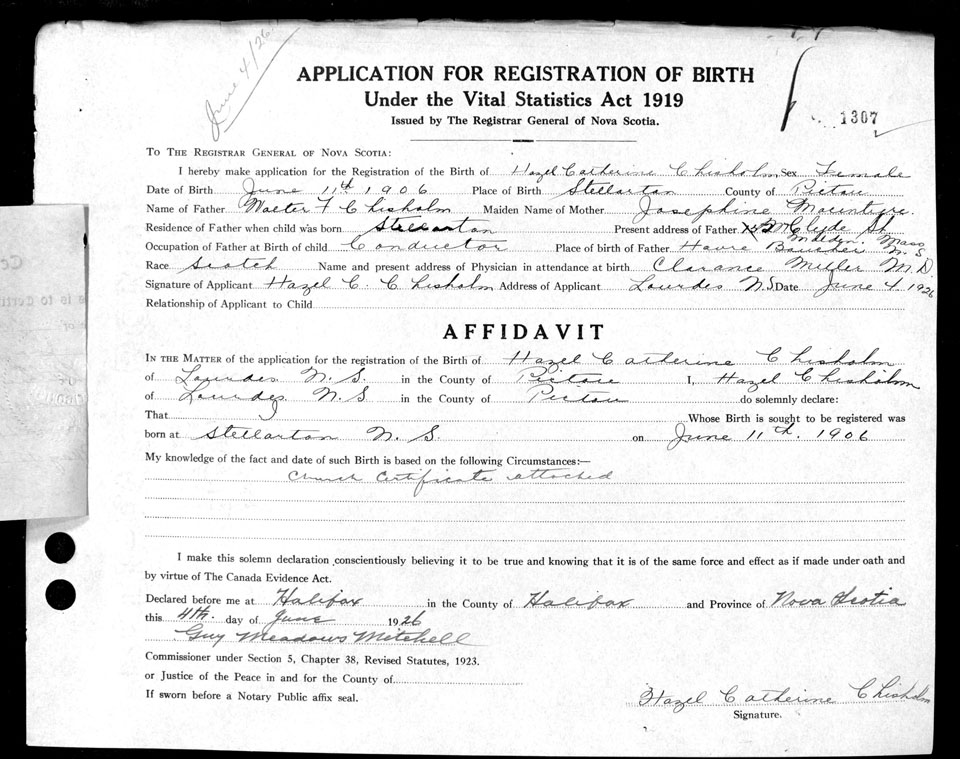 June 4/26
APPLICATION FOR REGISTRATION OF BIRTH
Under the Vital Statistics Act 1919
Issued by The Registrar General of Nova Scotia.
1307
TO THE REGISTRAR GENERAL OF NOVA SCOTIA:
I hereby make application for the Registration of the Birth of Hazel Catherine Chisholm Sex Female
Date of Birth June 11th 1906 Place of Birth Stellarton County of Pictou
Name of Father Walter F Chisholm Maiden Name of Mother Josephine
Residence of Father when child was born Stellarton Present address of Father Clyde St
Malden. Mass
Occupation of Father at Birth of child Conductor Place of birth of Father Havre Boucher N. S
Race Scotch Name and present address of Physician in attendance at birth Clarance Miller M.D.
Signature of Applicant Hazel C. Chisholm Address of Applicant Lourdes N.S Date June 4 1926
Relationship of Applicant to Child
AFFIDAVIT
IN THE MATTER of the application for the registration of the Birth of Hazel Catherine Chisholm
of Lourdes N. S. in the County of Pictou I, Hazel Chisholm
of Lourdes N. S. in the County of Pictou do solemnly declare:
That I Whose Birth is sought to be registered was
born at Stellarton N. S. on June 11th. 1906
My knowledge of the fact and date of such Birth is based on the following Circumstances:—
Church Certificate attached
I make this solemn declaration conscientiously believing it to be true and knowing that it is of the same force and effect as if made under oath and
by virtue of The Canada Evidence Act.
Declared before me at Halifax in the County of Halifax and Province of Nova Scotia
this 4th. day of June 1926
Guy Meadows Mitchell
Commissioner under Section 5, Chapter 38, Revised Statutes, 1923.
or Justice of the Peace in and for the County of
If sworn before a Notary Public affix seal.
Hazel Catherine Chisholm
Signature.